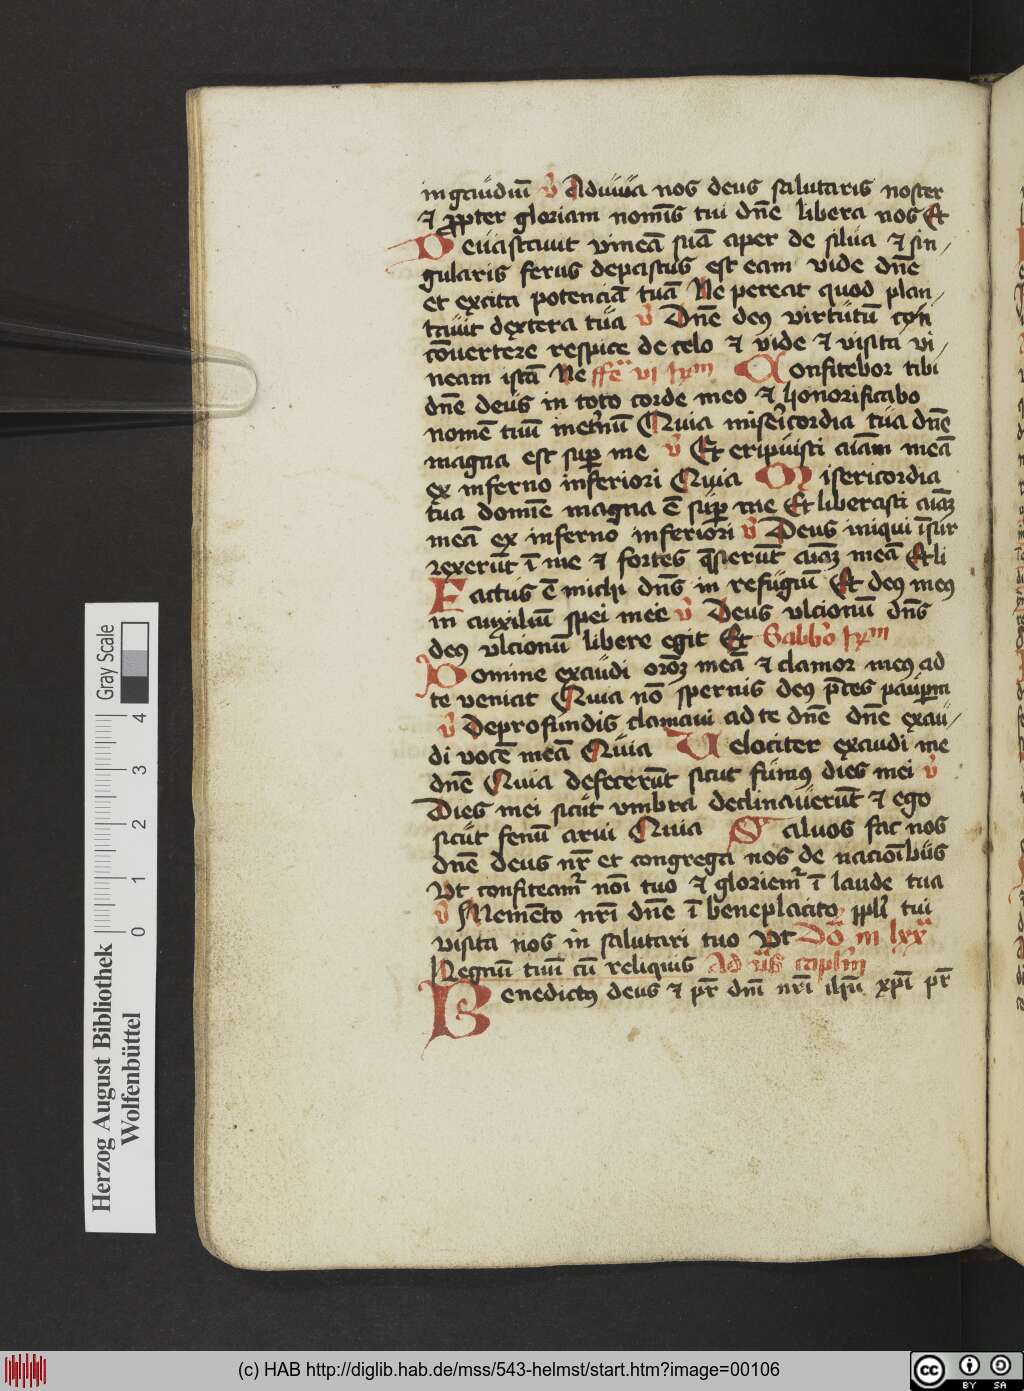 in gaudiū v̄ Adiuua nos deus salutaris noster
⁊ ꝓpter gloriam nomīs tui dn̄e libera nos Et
Deuastauit vineā suā aper de silua ⁊ sin/
gularis ferus depastus est eam vide dn̄e
et excita potenciā tuā Ne pereat quod plan/
tauit dextera tua v̄ Dn̄e deꝰ virtutū con
cōuertere respice de celo ⁊ vide ⁊ visita vi/
neam istā Ne ffea vi lxm Confitebor tibi
dn̄e deus in toto corde meo ⁊ honorificabo
nomē tuū ineternū Quia misericordia tua dn̄e
magna est suꝑ me v̄ Et eripuisti aīam meā
ex inferno inferiori Quia Misericordia
tua domīe magna ē suꝑ me Et liberasti aīaꝫ
meā ex inferno inferiori v̄ Deus iniqui īsur
rexerūt ī me ⁊ fortes q̄sierūt aīaꝫ meā Et li
Factus ē michi dn̄s in refugiū Et deꝰ meꝰ
in auxiliū spei mee v̄ Deus vlcionū dn̄s
deꝰ vlcionū libere egit Et Sabbo lxm
Domine exaudi orōꝫ meā ⁊ clamor meꝰ ad
te veniat Quia nō spernis deꝰ p̄ces pauꝑm
v̄ De profundis clamaui ad te dn̄e dn̄e exau/
di vocē meā Quia Velociter exaudi me
dn̄e Quia defecerūt sicut fumꝰ dies mei v̄
Dies mei sicut vmbra declinauerūt ⁊ ego
sicut fenū arui Quia Saluos fac nos
dn̄e deus nr̄ et congrega nos de nacioībus
Vt confiteamr noī tuo ⁊ gloriemr ī laude tua
v̄ Memēto nr̄i dn̄e ī beneplacito ppli tui
visita nos in salutari tuo Vt Dō in lxxa
Regnū tuū cū reliquis Ad vs capl'm
Benedictꝰ deus ⁊ pr̄ dnī nr̄i ihū xp̄i pr̄
Herzog August Bibliothek
Wolfenbüttel
0 1 2 3 4
Gray Scale
(c) HAB http://diglib.hab.de/mss/543-helmst/start.htm?image=00106
cc BY SA